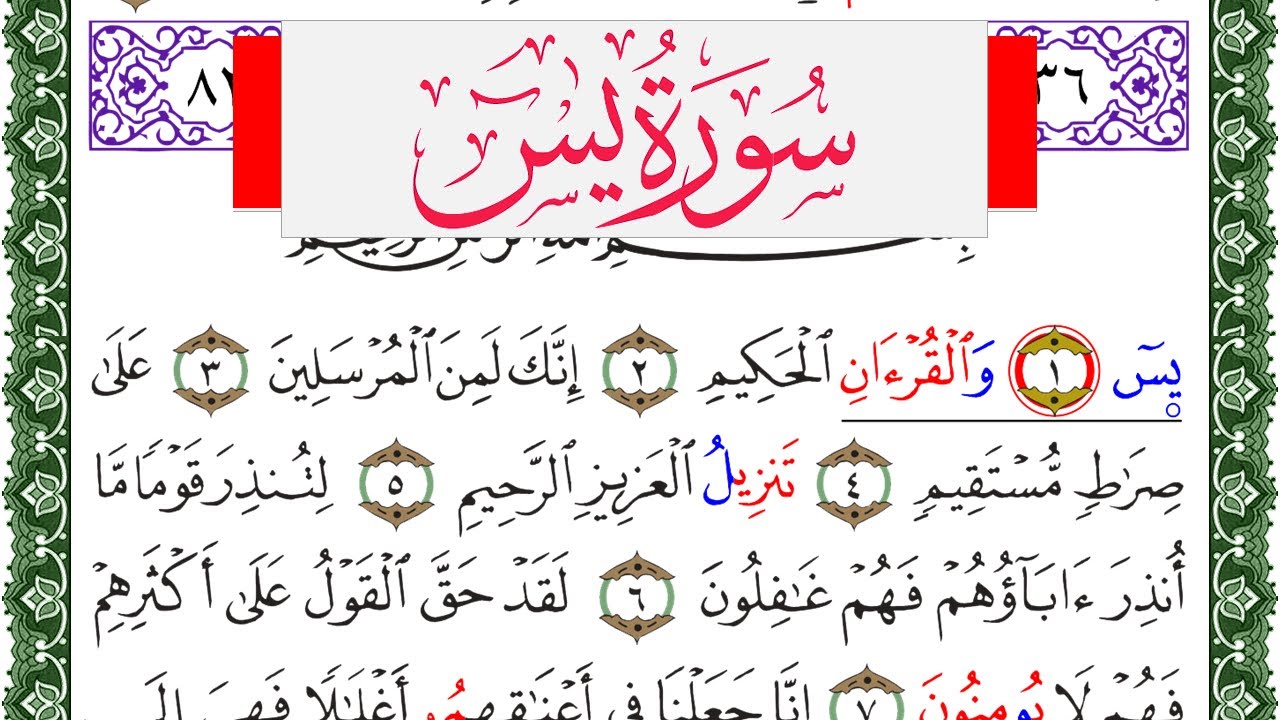 سُورَةُ يسٓ
يسٓ ١ وَالْقُرْءَانِ اِلْحَكِيمِ ٢ إِنَّكَ لَمِنَ اَلْمُرْسَلِينَ ٣ عَلَىٰ
صِرَٰطٍ مُّسْتَقِيمٍ ٤ تَنزِيلُ اُلْعَزِيزِ اِلرَّحِيمِ ٥ لِتُنذِرَ قَوْمًا مَّا
أُنذِرَ ءَابَآؤُهُمْ فَهُمْ غَٰفِلُونَ ٦ لَقَدْ حَقَّ اَلْقَوْلُ عَلَىٰ أَكْثَرِهِمْ
فَهُمْ لَا يُومِنُونَ ٧ إِنَّا جَعَلْنَا فِي أَعْنَٰقِهِمُۥ أَغْلَٰلًا فَهِيَ إِلَى